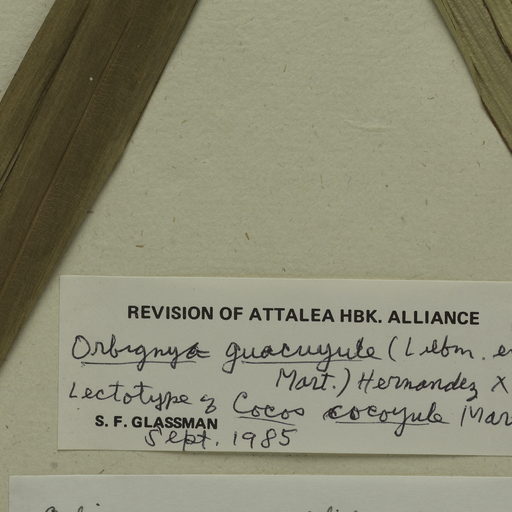 REVISION OF ATTALEA HBK. ALLIANCE
Orbignya guacuyule (Liebm. e
Mart.) Hernandez X
Lectotype of Cocos cocoyule Mar
S. F. GLASSMAN
Sept. 1985